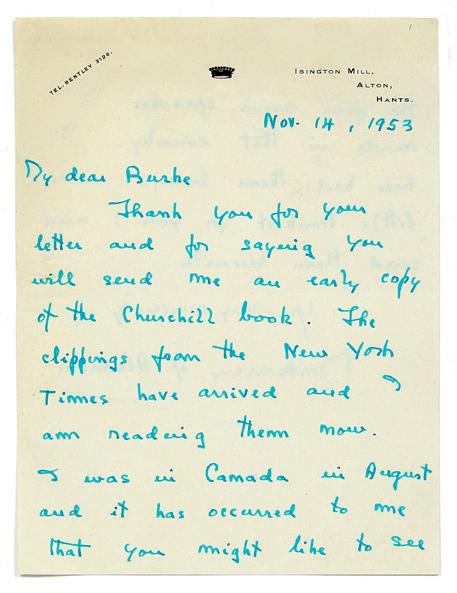 TEL. BENTLEY 3126.
ISINGTON MILL,
ALTON,
HANTS.
Nov. 14, 1953
My dear Burke
Thank you for your
letter and for saying you
will send me an early copy
of the Churchill book. The
clippings from the New York
Times have arrived and I
am reading them now.
I was in Canada in August
and it has occurred to me
that you might like to see